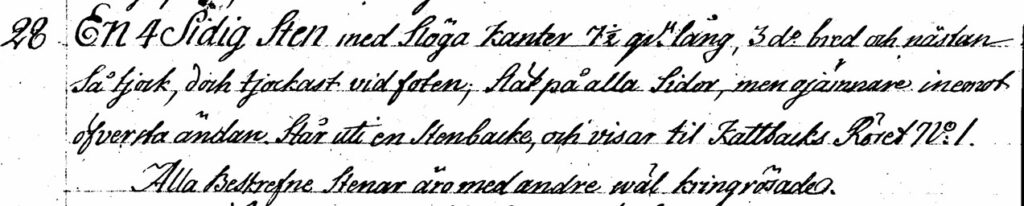 28 En 4 Sidig Sten med Slöga Kanter 7½ qvr lång, 3 do bred och nästan
så tjock, doch tjockast vid foten, slät på alla Sidor, men ojämnare inemot
öfversta ändan. Står uti en Stenbacke, och visar til Kattbacks Röret No. 1.
Alla Beskrefne Stenar äro med andre wäl kringrösade.